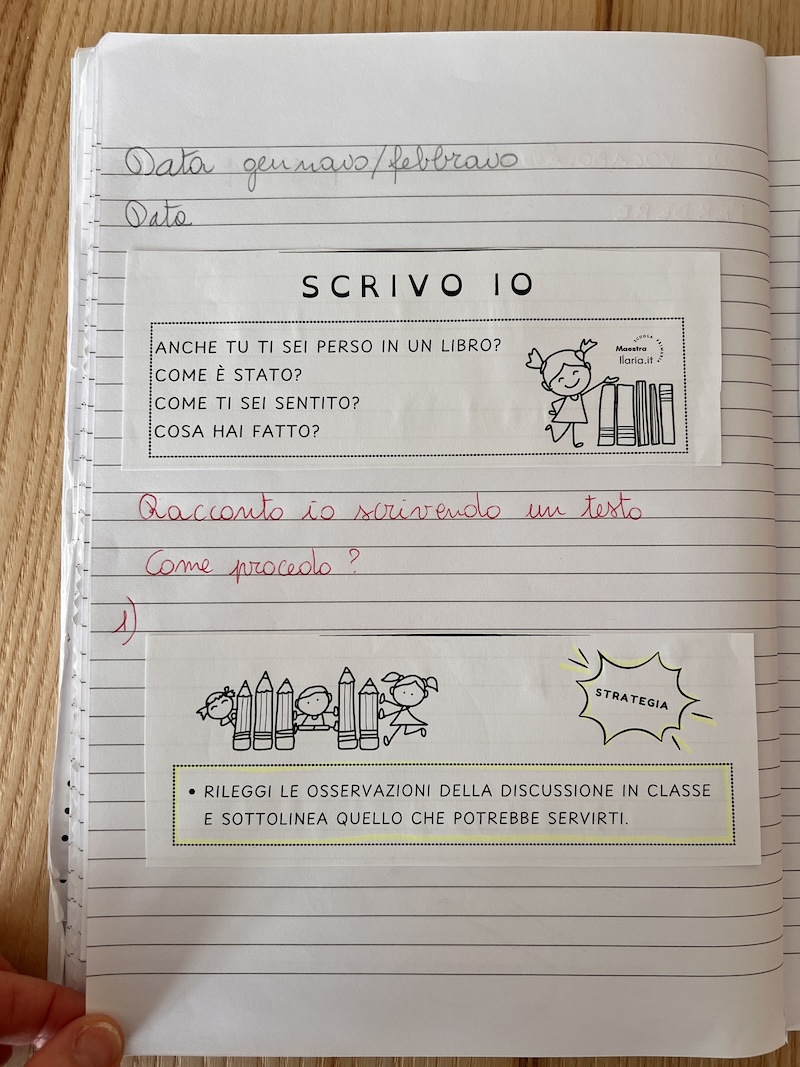 Data gennaio/febbraio
Data
SCRIVO IO
ANCHE TU TI SEI PERSO IN UN LIBRO?
COME È STATO?
COME TI SEI SENTITO?
COSA HAI FATTO?
SCUOLA PRIMARIA
Maestra
Ilaria.it
Racconto io scrivendo un testo
Come procedo?
1)
STRATEGIA
• RILEGGI LE OSSERVAZIONI DELLA DISCUSSIONE IN CLASSE
E SOTTOLINEA QUELLO CHE POTREBBE SERVIRTI.